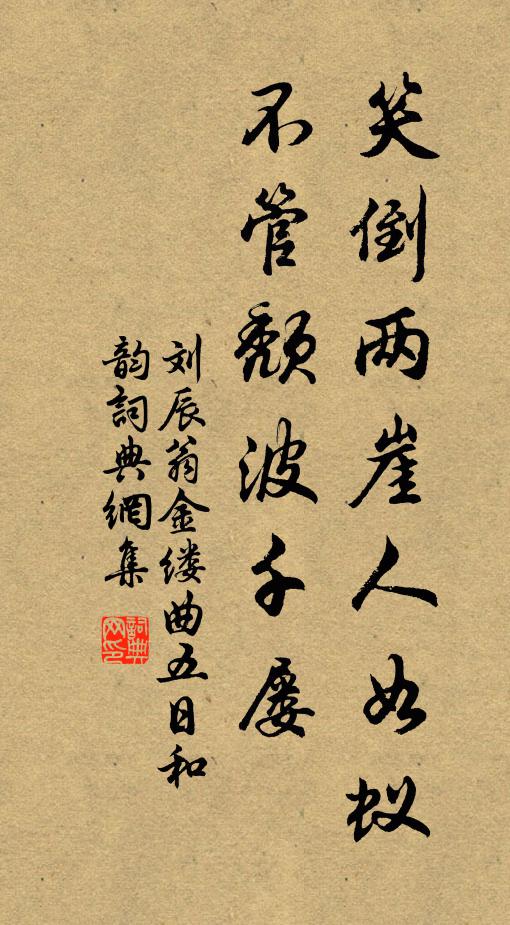 笑倒两崖人如蚁
不管颓波千屡
刘辰翁金缕曲五日和
韵词典網集
詞典网印